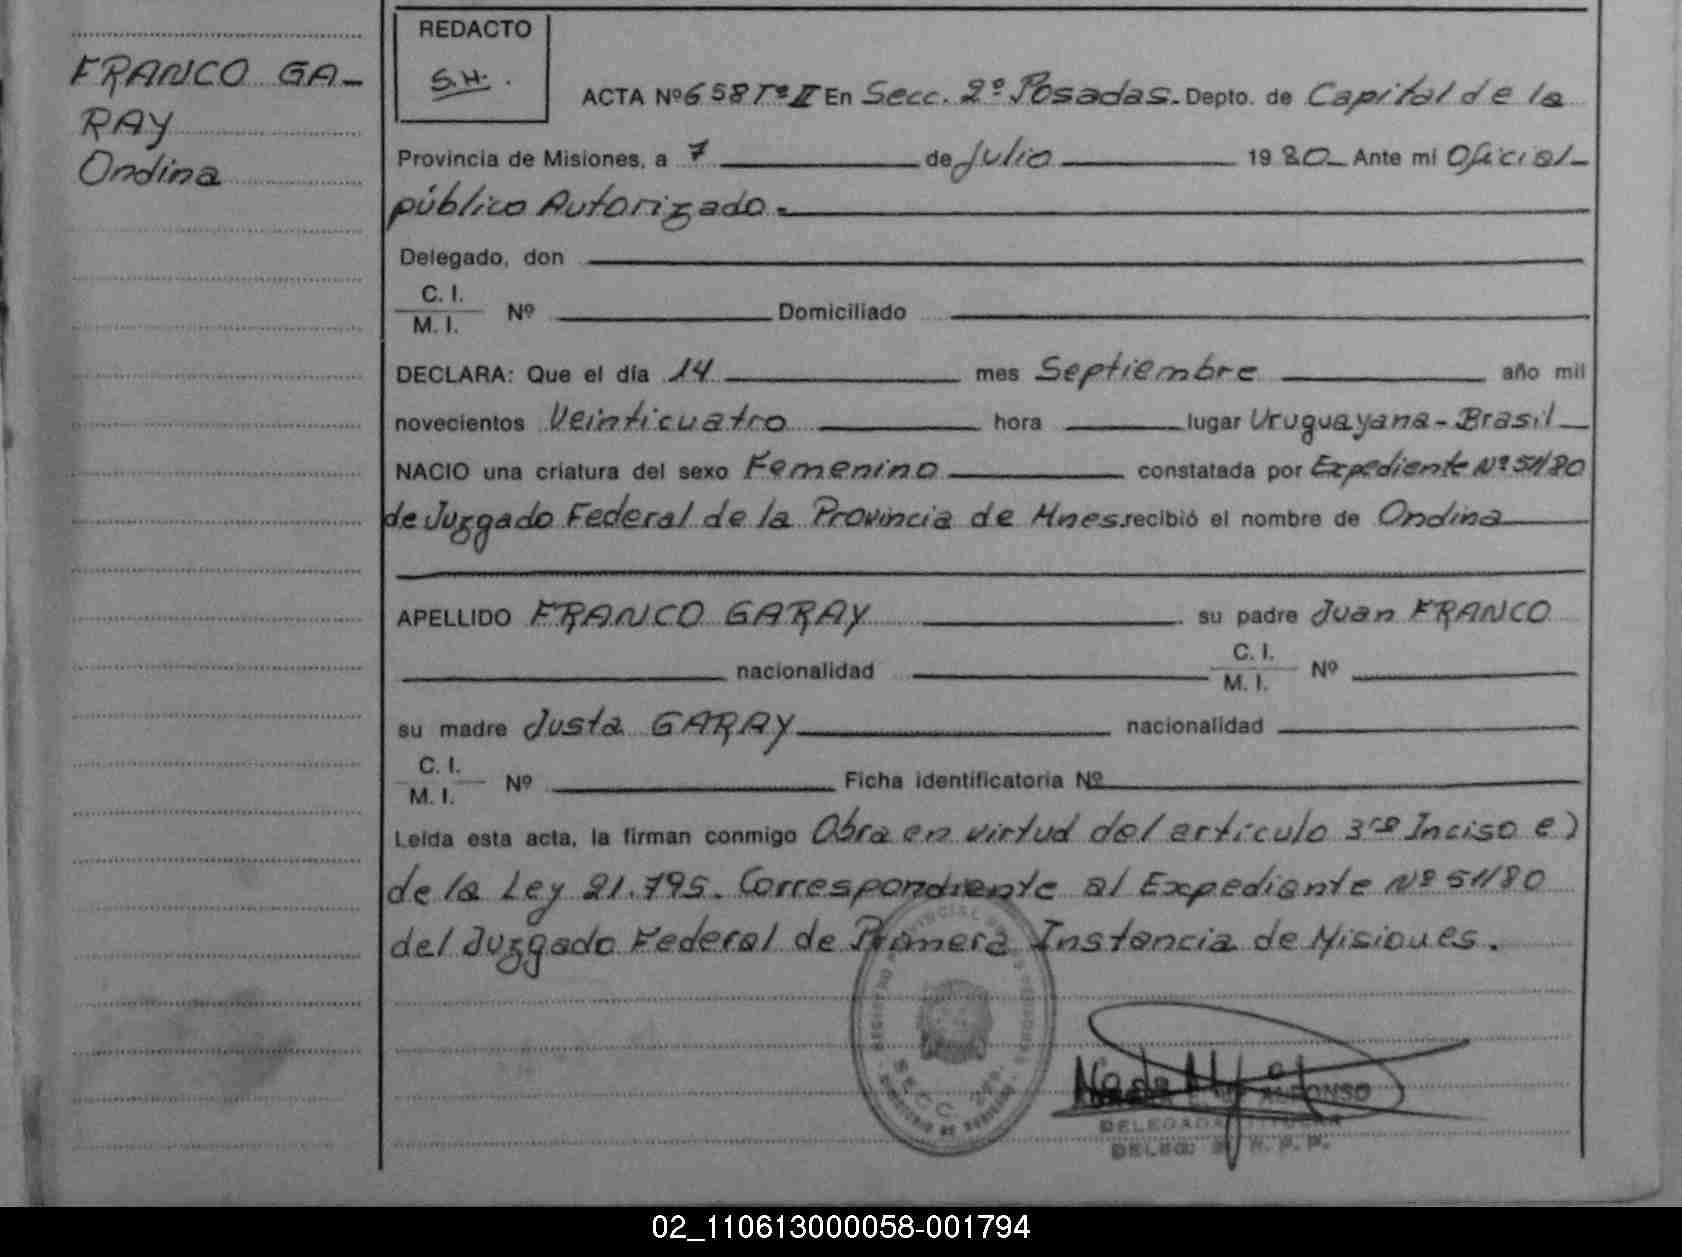 FRANCO GA-
RAY
Ondina
REDACTO
S.H.
ACTA Nº 658 Tº II En Secc. 2º Posadas. Depto. de Capital de la
Provincia de Misiones, a 7 de Julio 1980 Ante mi Oficial
público Autorizado.
Delegado, don
C. I.
M. I. Nº Domiciliado
DECLARA: Que el día 14 mes Septiembre año mil
novecientos Veinticuatro hora lugar Uruguayana - Brasil
NACIO una criatura del sexo Femenino constatada por Expediente Nº 511/80
de Juzgado Federal de la Provincia de Mnes. recibió el nombre de Ondina
APELLIDO FRANCO GARAY su padre Juan FRANCO
nacionalidad C. I.
M. I. Nº
su madre Justa GARAY nacionalidad
C. I.
M. I. Nº Ficha identificatoria Nº
Leída esta acta, la firman conmigo Obra en virtud del artículo 3ro Inciso e)
de la Ley 21.795. Correspondiente al Expediente Nº 511/80
del Juzgado Federal de Primera Instancia de Misiones.
ALFONSO
DELEGADA TITULAR
02_110613000058-001794